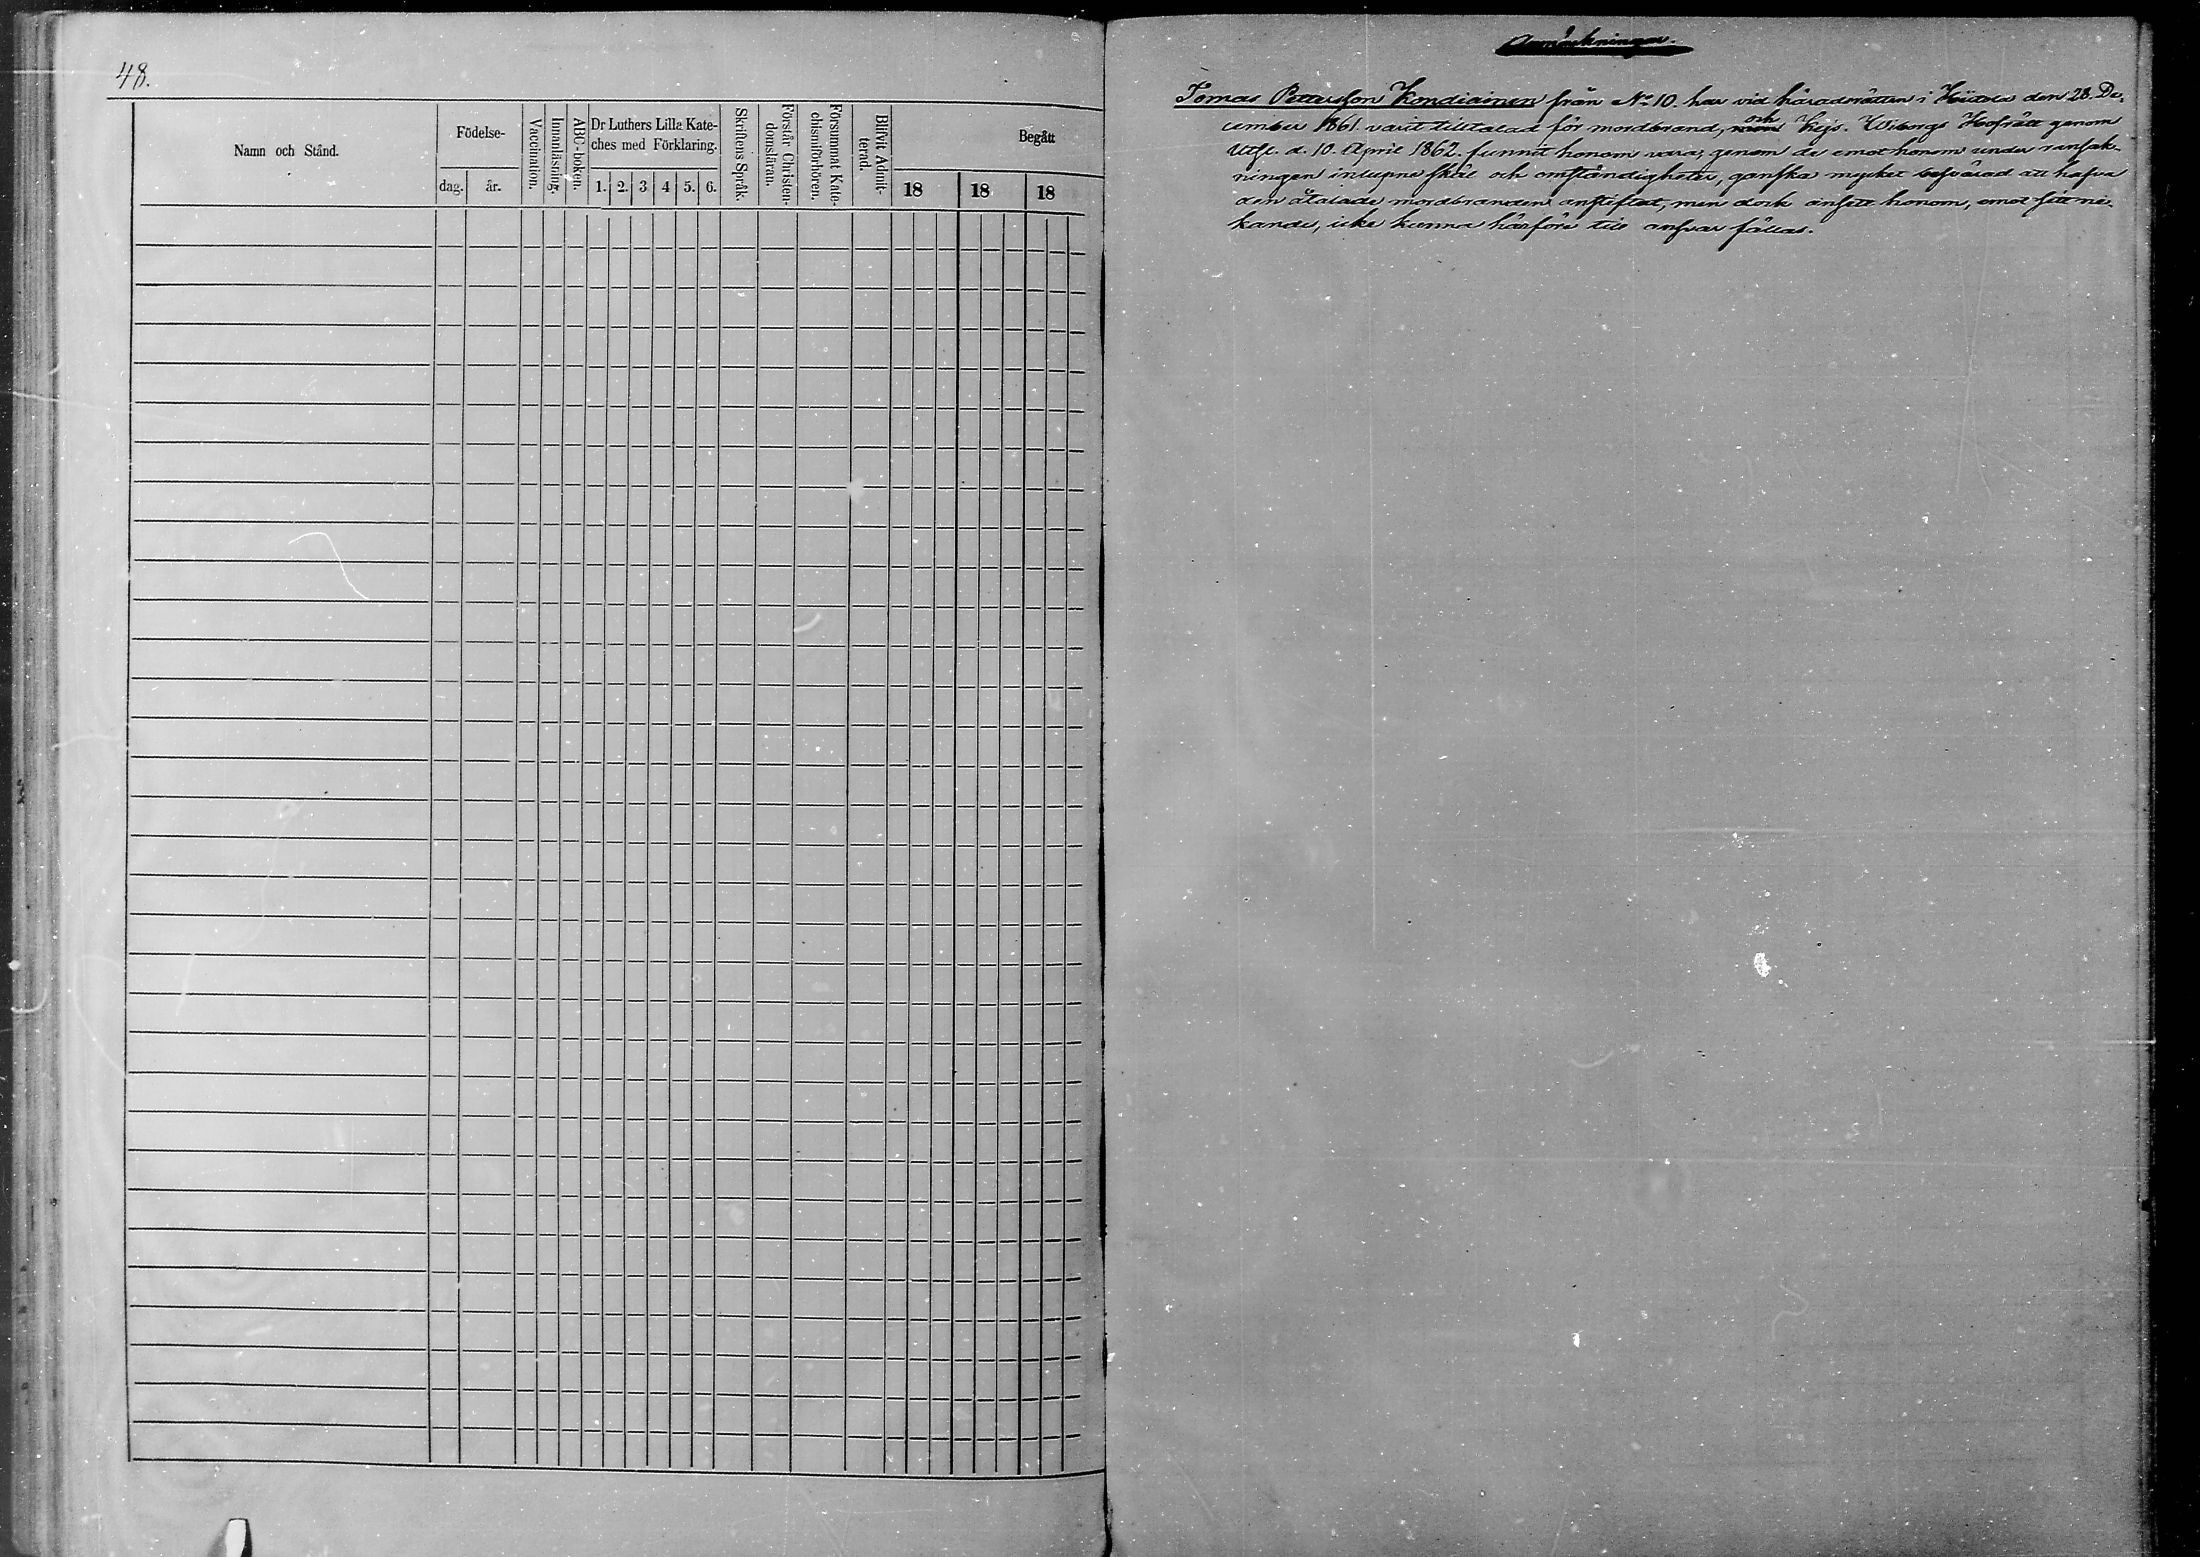 48.
Namn och Stånd.
Födelse-
dag.
år.
Vaccination.
Innanläsning.
ABC-boken.
Dr Luthers Lilla Kate-
ches med Förklaring.
1. 2. 3 4 5. 6.
Skriftens Språk.
Förstår Christen-
domsläran.
Försummat Kate-
chismiförhören.
Blifvit Admit-
terad.
Begått
18 18 18
Anmärkningar.
Tomas Pettersson Kondiainen från No 10. har vid häradsrätten i Hiitola den 28. De-
cember 1861. varit tilltalad för mordbrand, och Kejs. Wiborgs Hofrätt genom
Utsl. d. 10. April 1862. funnit honom vara, genom de emot honom under ransak-
ningen inlupna skäl och omständigheter, ganska mycket besvärad att hafva
den åtalade mordbranden anstiftat, men dock ansett honom, emot sitt ne-
kande, icke kunna härföre till ansvar fällas.